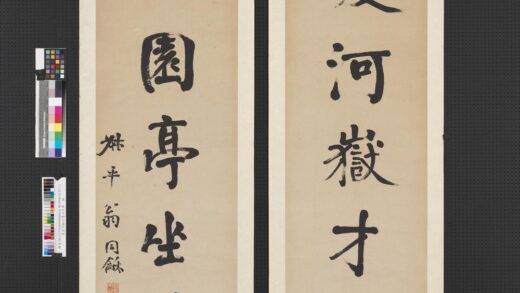 河嶽才
園亭坐
叔平翁同龢